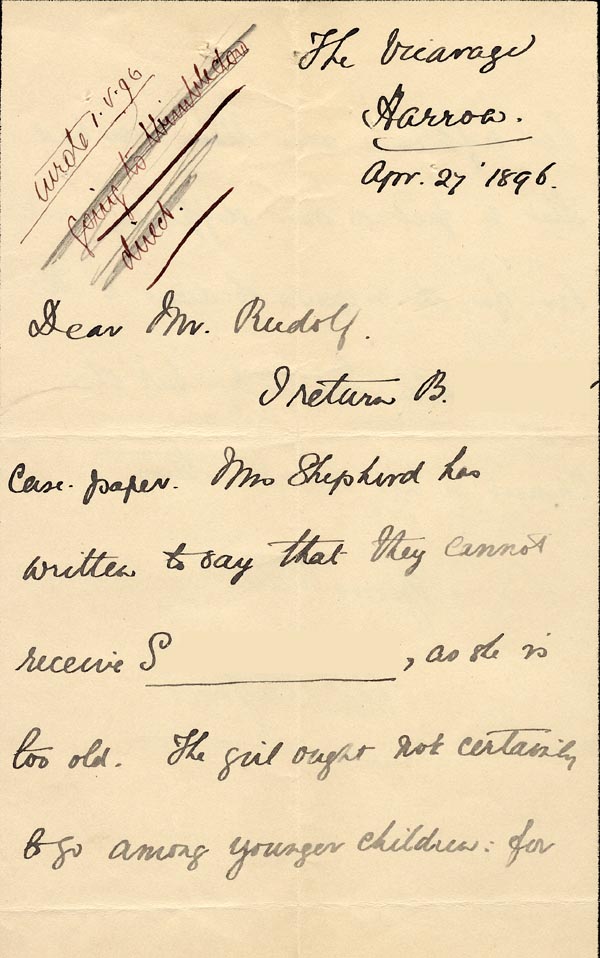 wrote 1.V.96
going to Wimbledon
direct.
The Vicarage
Harrow.
Apr. 27 1896.
Dear Mr. Rudolf.
I return B.
Case-paper. Mrs Shepherd has
written to say that they cannot
receive S , as she is
too old. The girl ought not certainly
to go among younger children: for